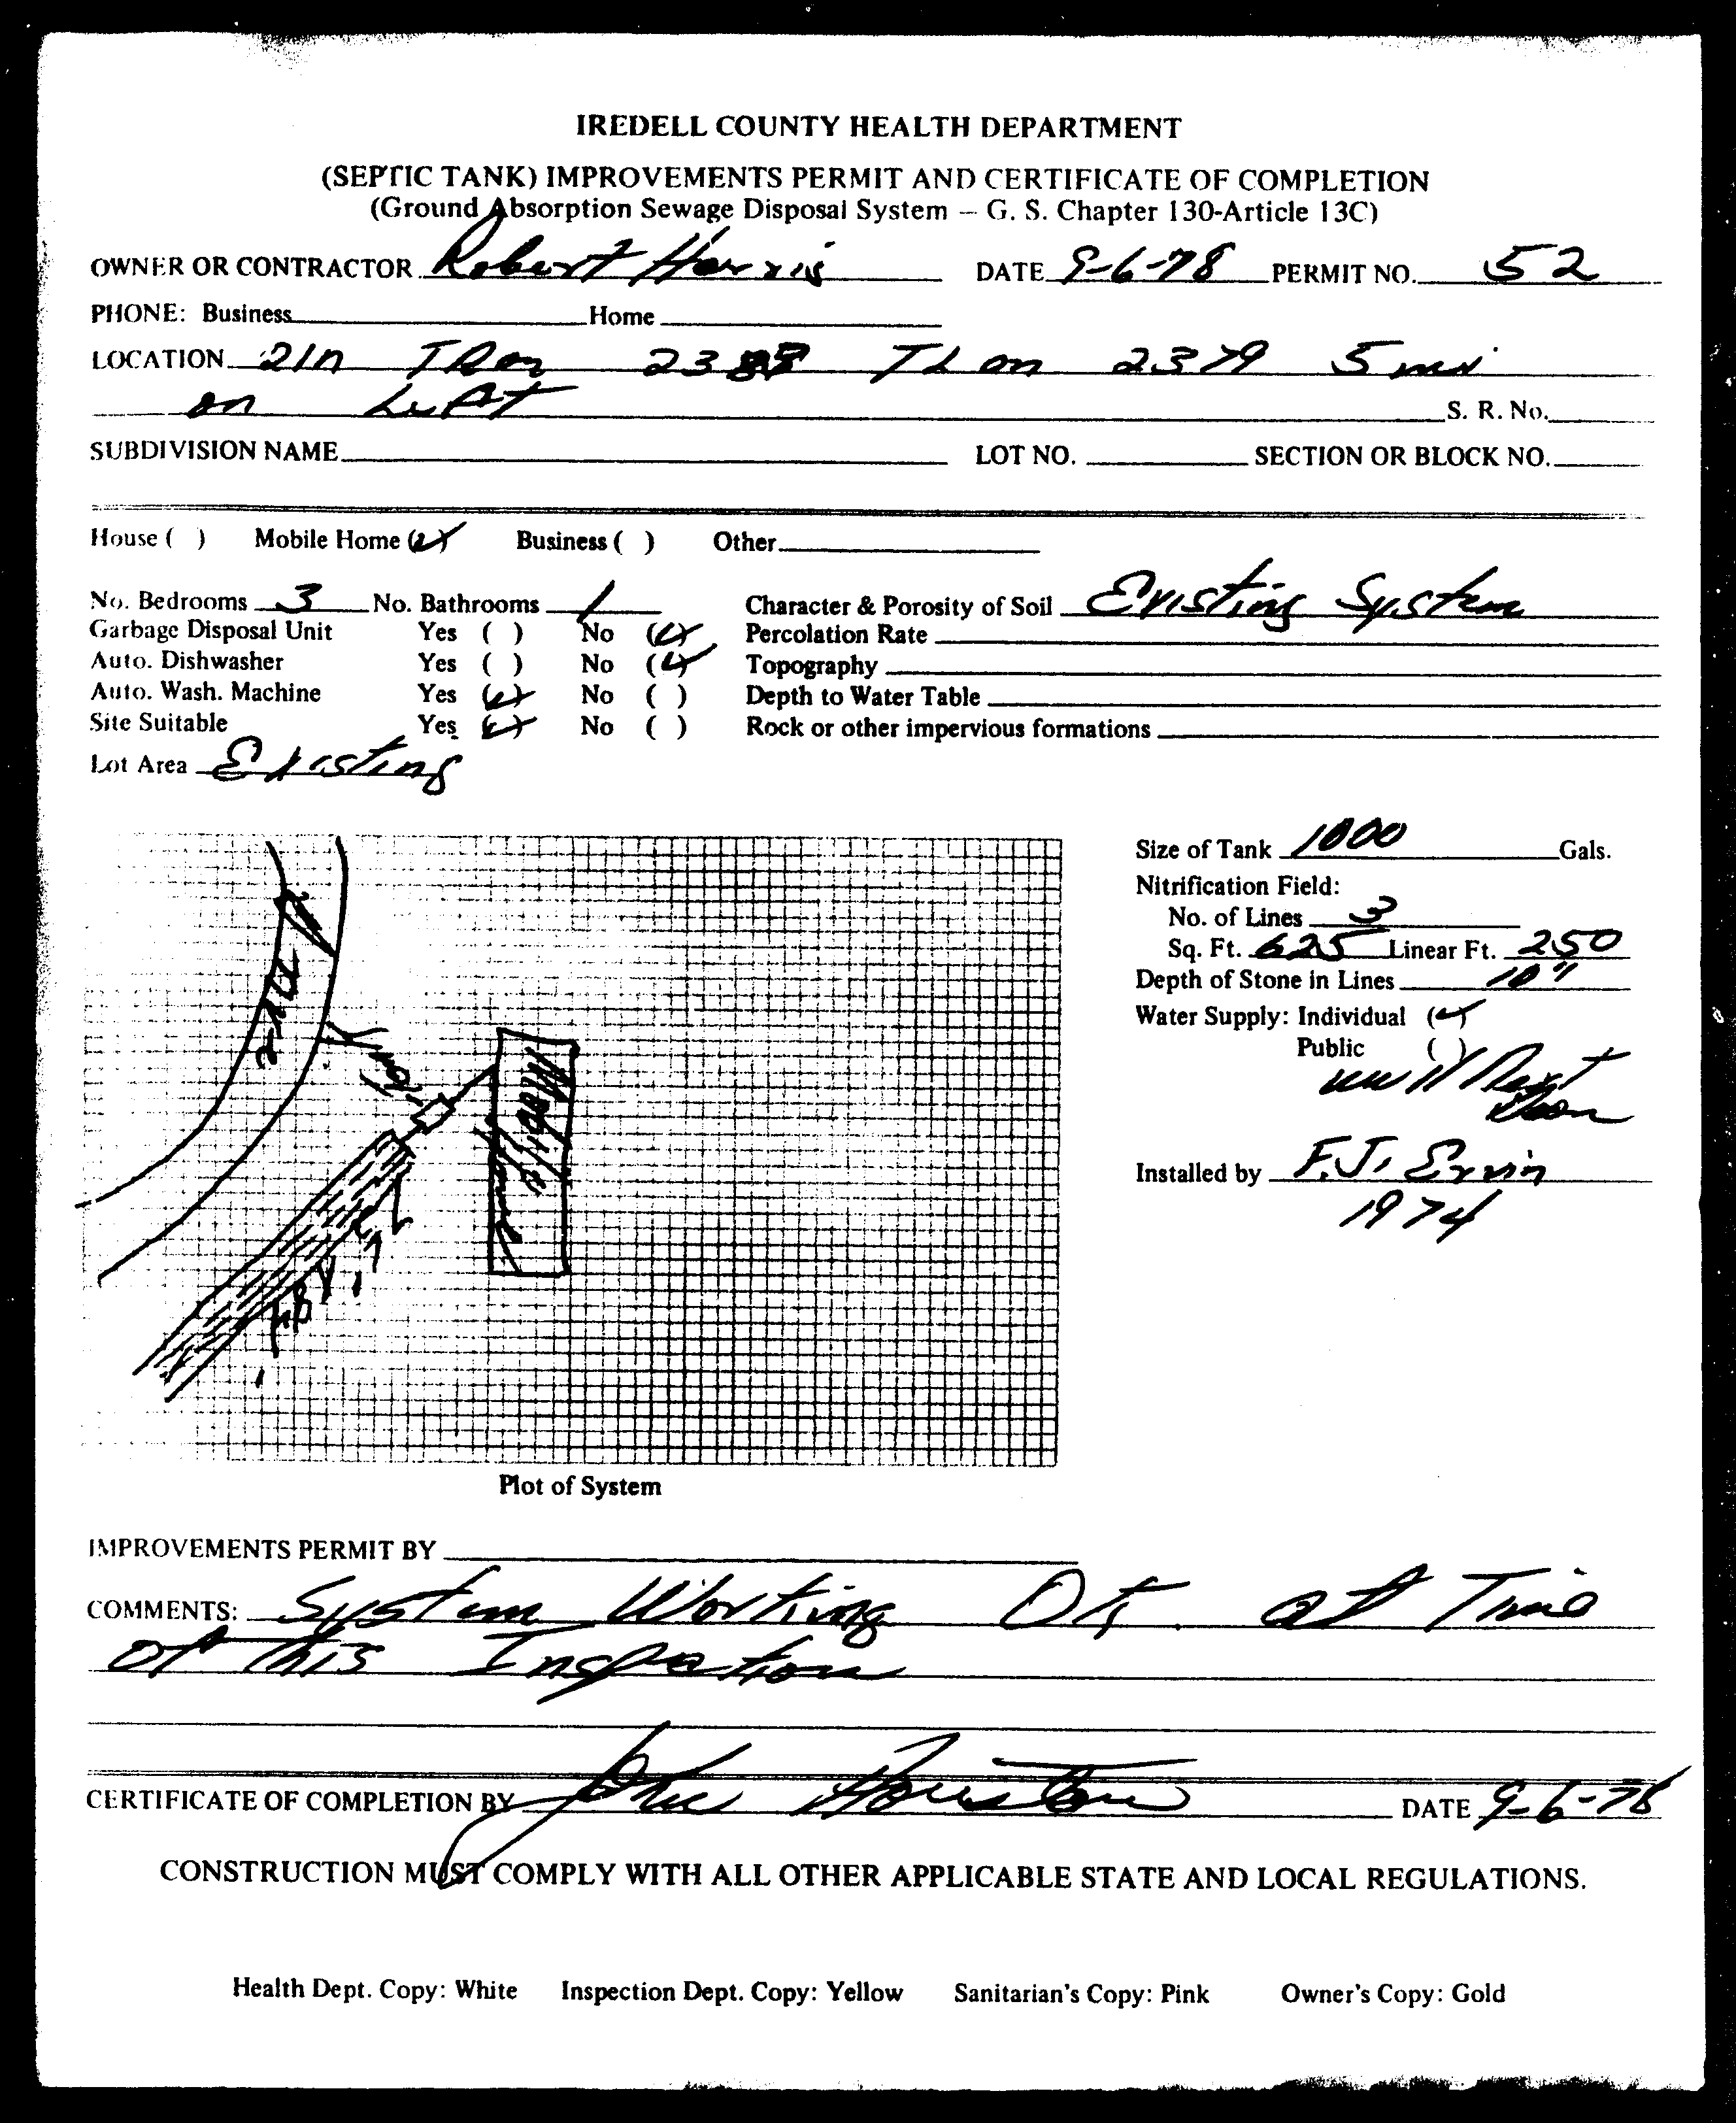 IREDELL COUNTY HEALTH DEPARTMENT
(SEPTIC TANK) IMPROVEMENTS PERMIT AND CERTIFICATE OF COMPLETION
(Ground Absorption Sewage Disposal System — G. S. Chapter 130-Article 13C)
OWNER OR CONTRACTOR Robert Harris DATE 9-6-78 PERMIT NO. 52
PHONE: Business Home
LOCATION 21n TR on 23 TL on 2379 5 mi
on Left S. R. No.
SUBDIVISION NAME LOT NO. SECTION OR BLOCK NO.
House ( ) Mobile Home (✓) Business ( ) Other
No. Bedrooms 3 No. Bathrooms 1 Character & Porosity of Soil Existing System
Garbage Disposal Unit Yes ( ) No (✓) Percolation Rate
Auto. Dishwasher Yes ( ) No (✓) Topography
Auto. Wash. Machine Yes (✓) No ( ) Depth to Water Table
Site Suitable Yes (✓) No ( ) Rock or other impervious formations
Lot Area Existing
Size of Tank 1000 Gals.
Nitrification Field:
No. of Lines 3
Sq. Ft. 625 Linear Ft. 250
Depth of Stone in Lines 10"
Water Supply: Individual (✓)
Public ( )
Mobile
Home
Installed by F.J. Ervin
1974
Plot of System
IMPROVEMENTS PERMIT BY
COMMENTS: System Working OK. at Time
of this Inspection
CERTIFICATE OF COMPLETION BY Houston DATE 9-6-78
CONSTRUCTION MUST COMPLY WITH ALL OTHER APPLICABLE STATE AND LOCAL REGULATIONS.
Health Dept. Copy: White Inspection Dept. Copy: Yellow Sanitarian's Copy: Pink Owner's Copy: Gold